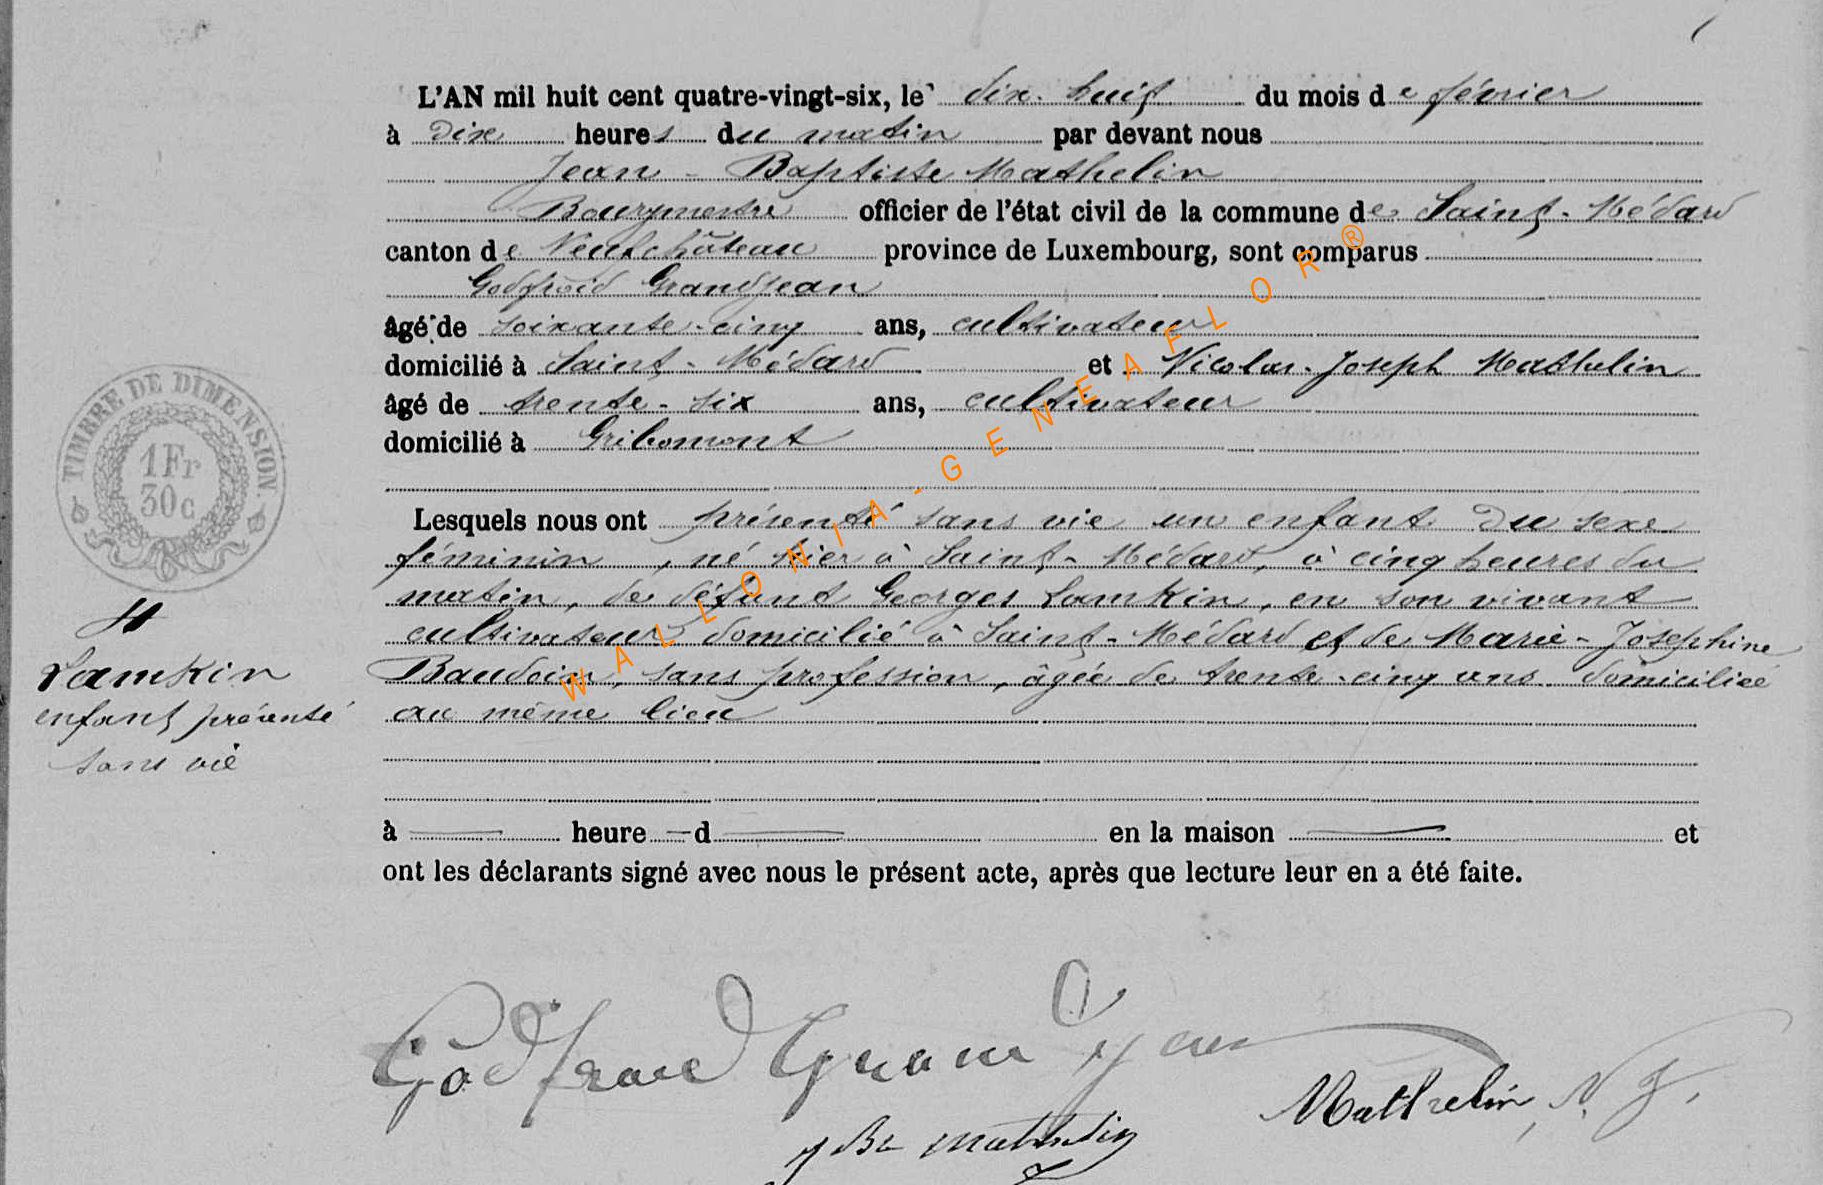 L'AN mil huit cent quatre-vingt-six, le dix-huit du mois de février
à dix heures du matin par devant nous
Jean-Baptiste Mathelin
Bourgmestre officier de l'état civil de la commune de Saint-Médard
canton de Neufchâteau province de Luxembourg, sont comparus
Godfroid Grandjean
âgé de soixante-cinq ans, cultivateur
domicilié à Saint-Médard et Nicolas-Joseph Mathelin
âgé de trente-six ans, cultivateur
domicilié à Gribomont
Lesquels nous ont présenté sans vie un enfant du sexe
féminin, né hier à Saint-Médard, à cinq heures du
matin, de défunt Georges Lamkin, en son vivant
cultivateur domicilié à Saint-Médard et de Marie-Joséphine
Baudoin, sans profession, âgée de trente-cinq ans domiciliée
au même lieu
à heure d en la maison et
ont les déclarants signé avec nous le présent acte, après que lecture leur en a été faite.
TIMBRE DE DIMENSION.
1Fr
30c
4
Lamkin
enfant présenté
sans vie
WALLONIA-GENEAFLOR®
Godfroid Grandjean
Mathelin, N. J.
J Bte Mathelin